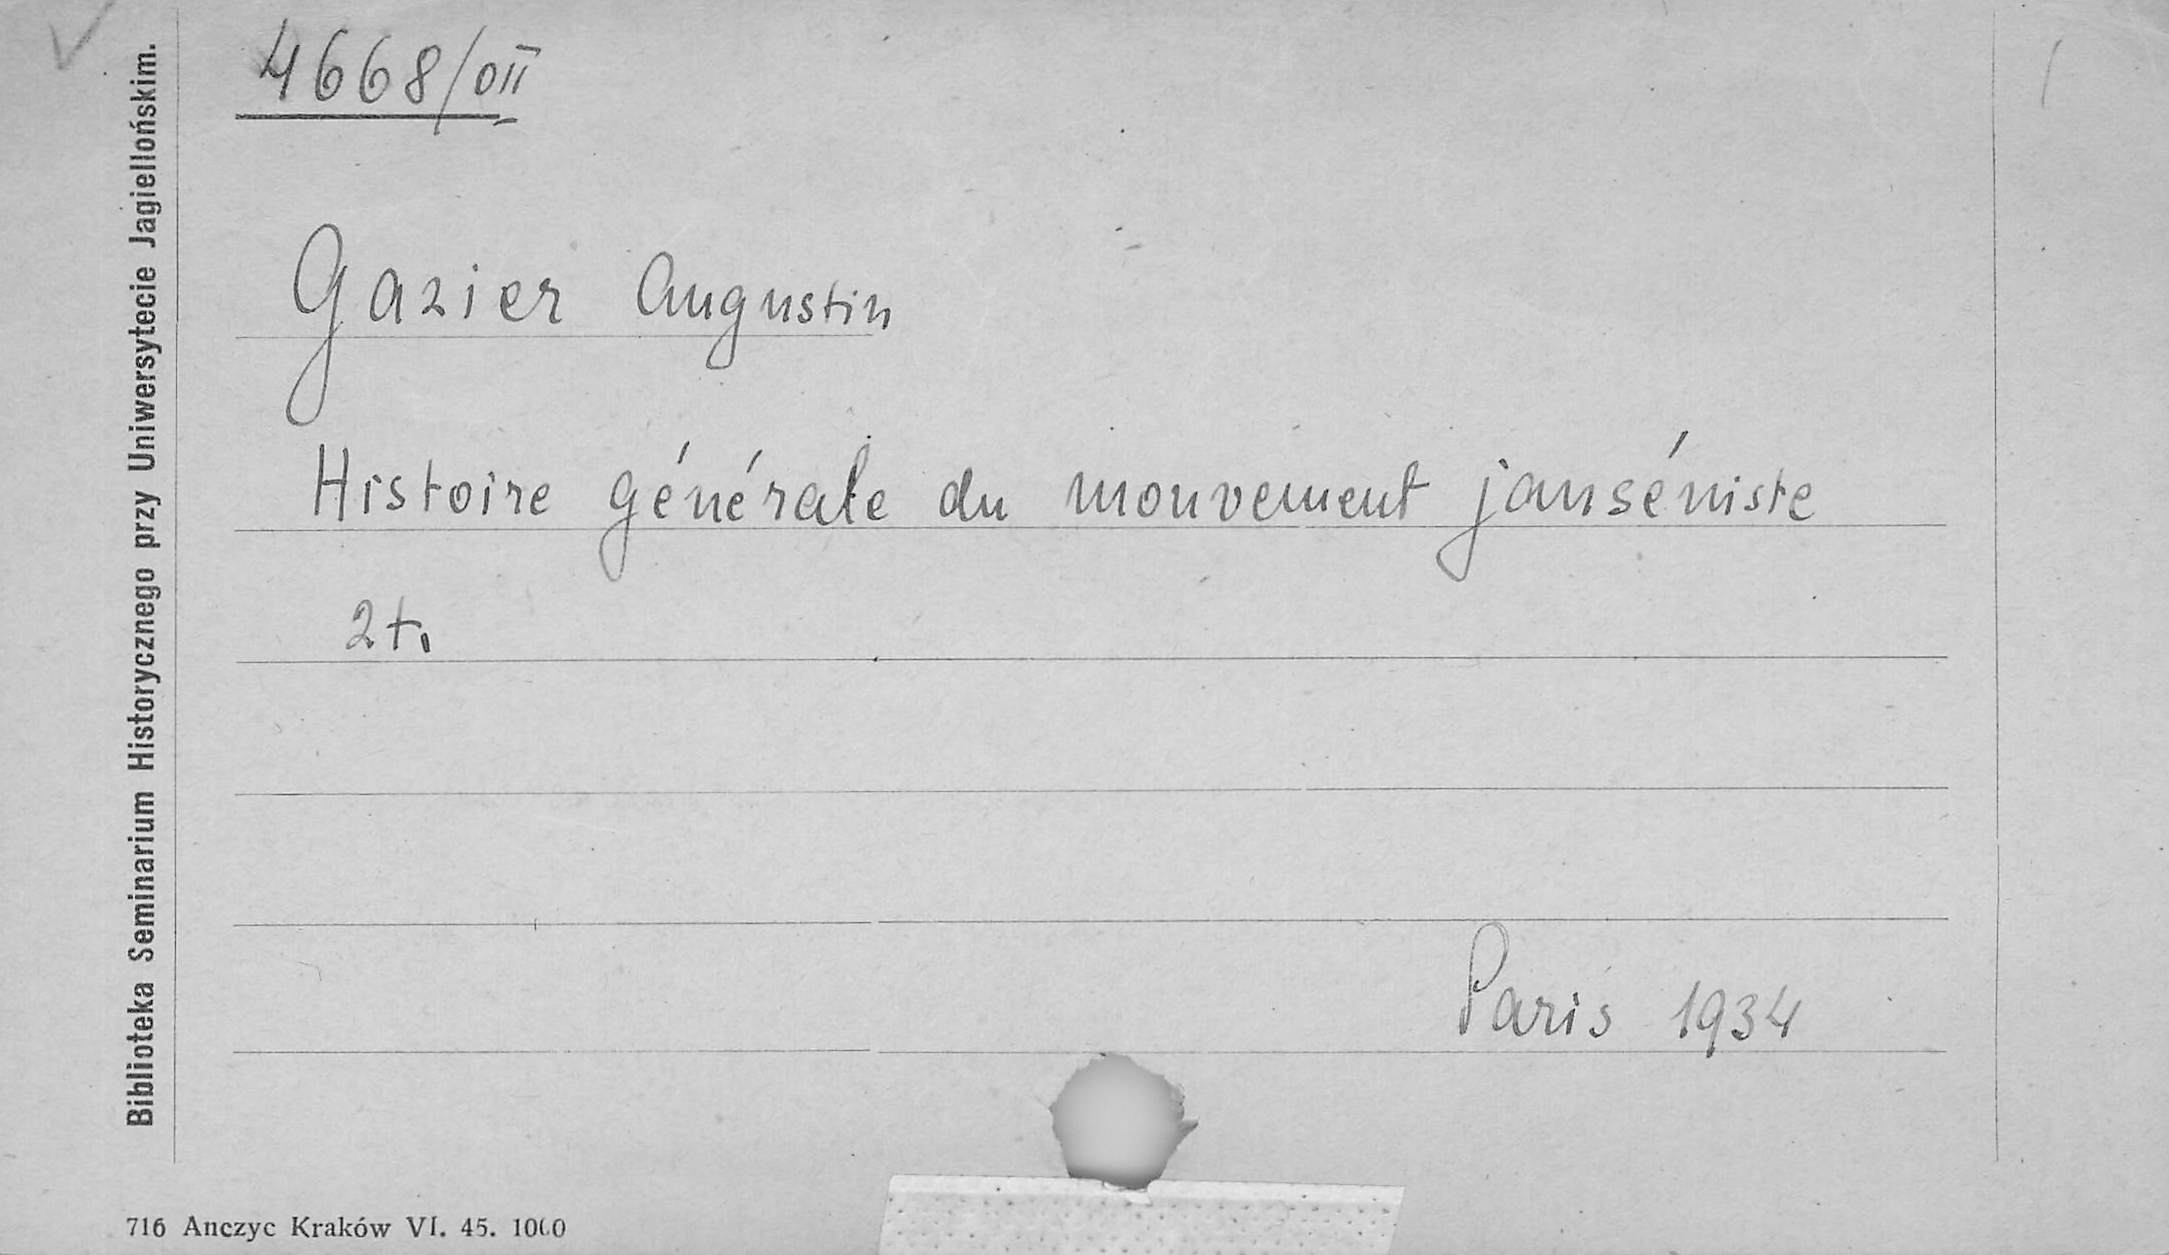 4668/0II
Gazier Augustin
Histoire générale du mouvement janséniste
2 t.
Paris 1934
Biblioteka Seminarium Historycznego przy Uniwersytecie Jagiellońskim.
716 Anczyc Kraków VI. 45. 1000